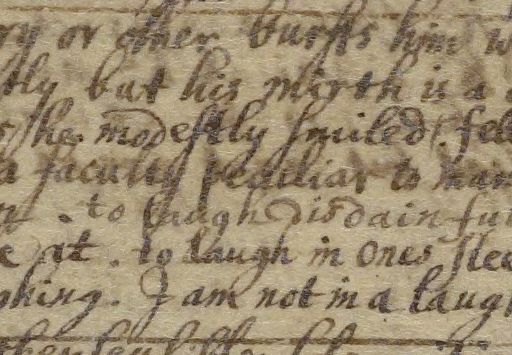 ry or other bursts him w
tly but his mirth is a
s he modestly smiled, fel
a faculty peculiar to man
n . to laugh disdainful
e at . to laugh in ones slee
ghing . I am not in a laugh